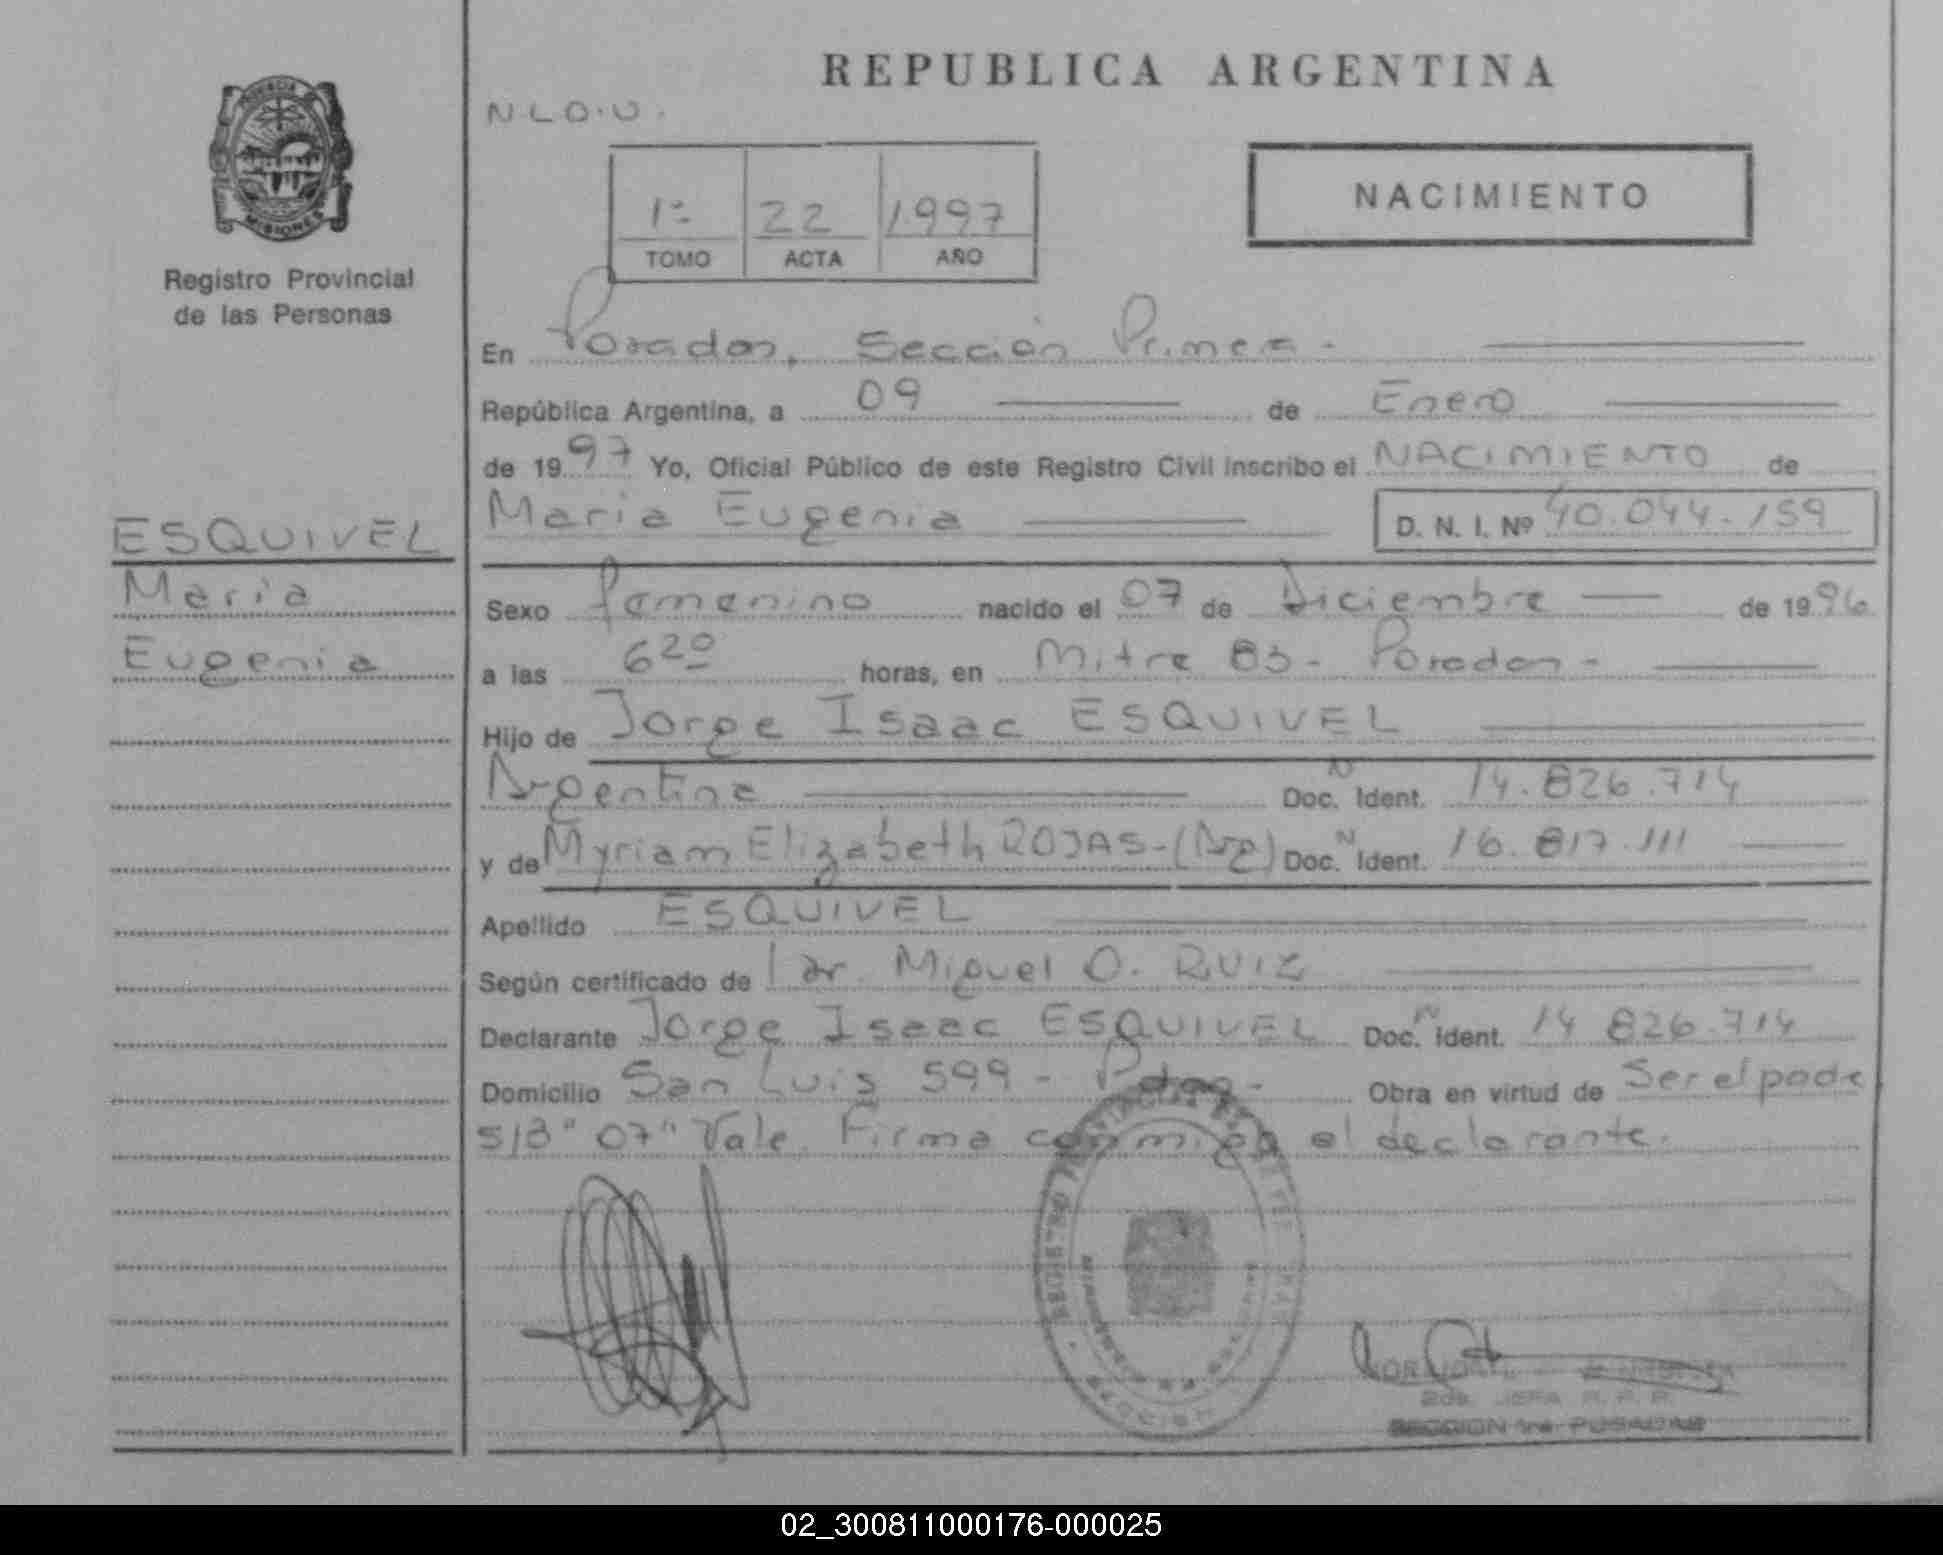 REPUBLICA ARGENTINA
N.L.O.U.
PROVINCIA
MISIONES
Registro Provincial
de las Personas
1º 22 1997
TOMO ACTA AÑO
NACIMIENTO
En Posadas, Sección Primera.
República Argentina, a 09 de Enero
de 1997 Yo, Oficial Público de este Registro Civil inscribo el NACIMIENTO de
Maria Eugenia D. N. I. Nº 40.044.159
ESQUIVEL
Maria
Eugenia
Sexo femenino nacido el 07 de Diciembre de 1996
a las 6 20 horas, en Mitre 83 - Posadas -
Hijo de Jorge Isaac ESQUIVEL
Argentina Doc. N Ident. 14.826.714
y de Myriam Elizabeth ROJAS - (Arg) Doc. N Ident. 16.817.111
Apellido ESQUIVEL
Según certificado de Dr. Miguel O. RUIZ
Declarante Jorge Isaac ESQUIVEL Doc. N Ident. 14 826.714
Domicilio San Luis 599 - Pdas - Obra en virtud de Ser el padre
S/B "07" Vale. Firma conmigo el declarante.
2da. JEFA R. P. P.
SECCION 1ra. POSADAS
02_300811000176-000025